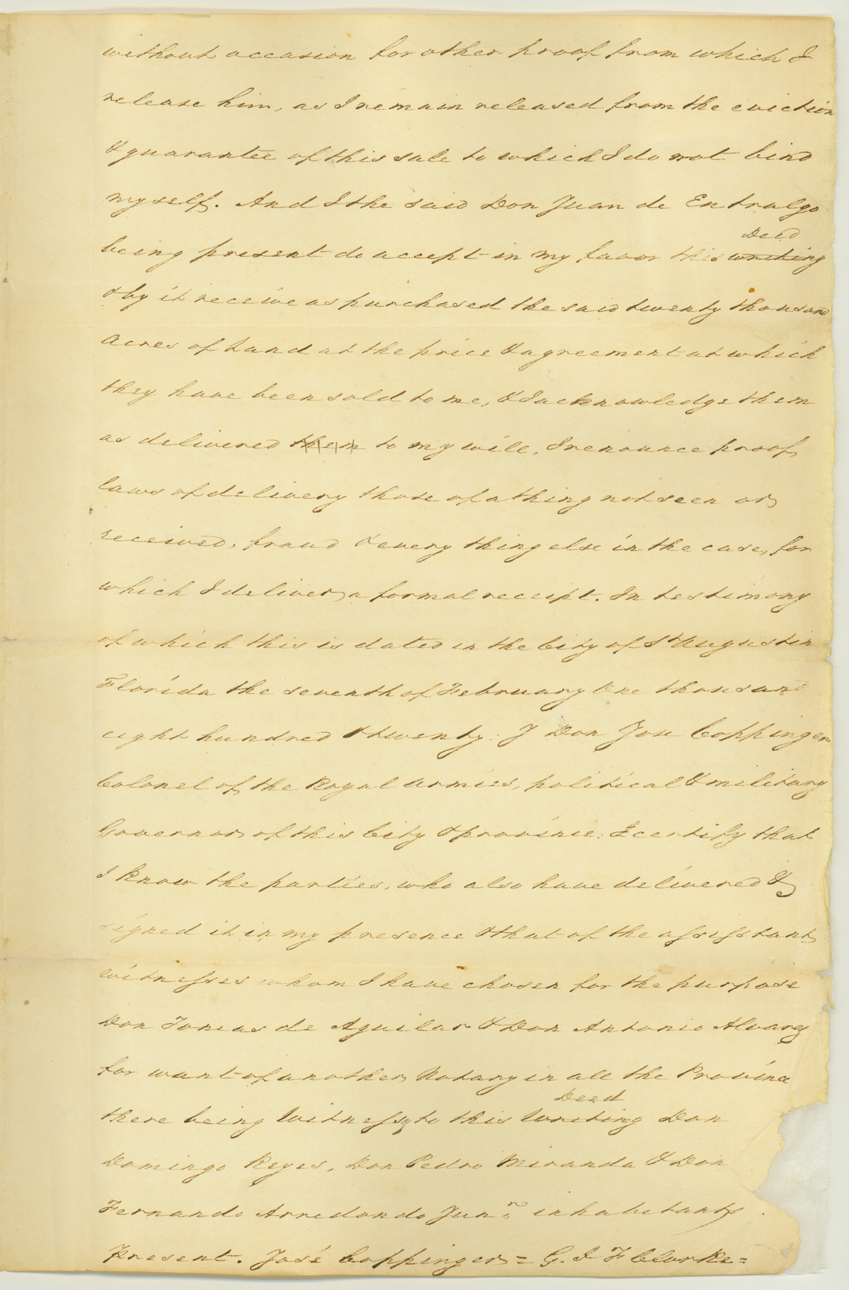 without occasion for other proof from which I
release him, as I remain released from the eviction
& guarantee of this sale to which I do not bind
myself. And I the said Don Juan de Entralgo
Deed
being present do accept in my favor this writing
& by it receive as purchased the said twenty thousand
Acres of Land at the price & agreement at which
they have been sold to me, & I acknowledge them
as delivered them to my will, I renounce proof
laws of delivery those of a thing not seen or
received, fraud & every thing else in the case, for
which I deliver a formal receipt. In testimony
of which this is dated in the City of St Augustin
Florida the seventh of February One thousand
eight hundred & twenty. I Don Jou Coppinger
Colonel of the Royal Armies, political & military
Governor of this City & province: I certify that
I know the parties, who also have delivered &
signed it in my presence & that of the assistant
witnesses whom I have chosen for the purpose
Don Tomas de Aguilar & Don Antonio Alvarez
for want of another Notary in all the Province
Deed
there being Witness to this Writing Don
Domingo Reyes, Don Pedro Miranda & Don
Fernando Arredondo Junr. inhabitants
Present. José Coppinger = G. I. F Clarke =